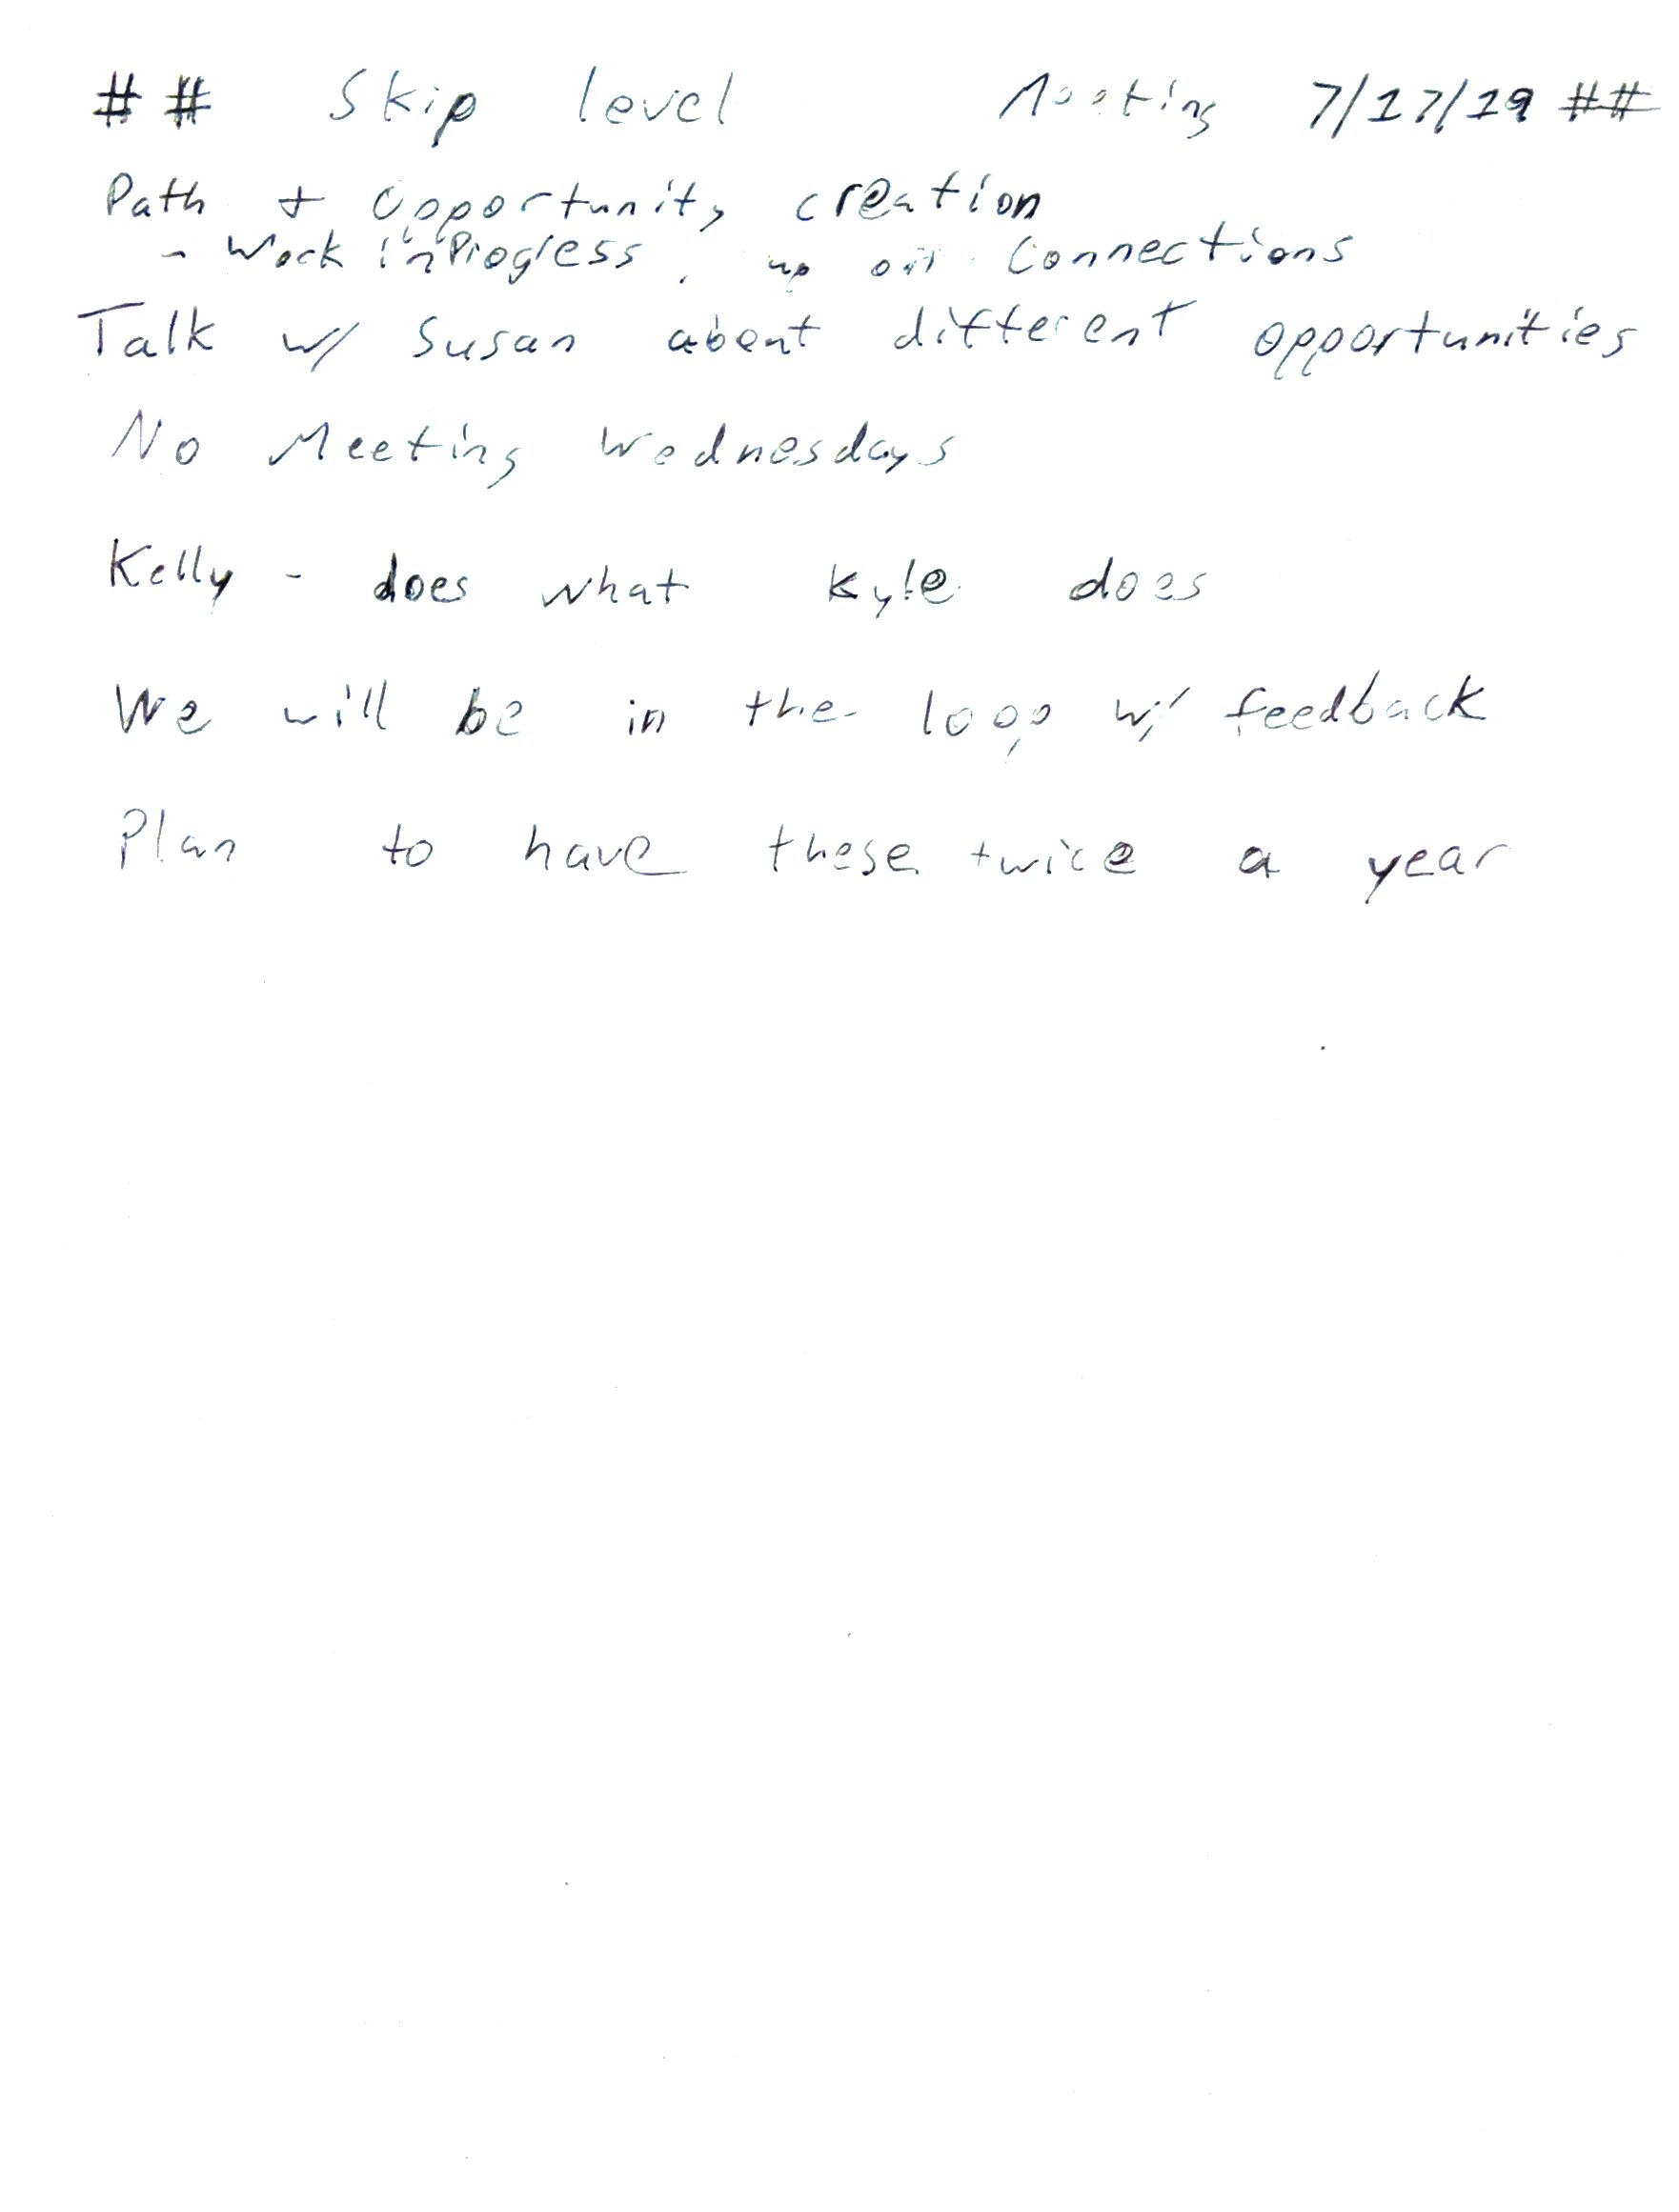 ## Skip level Meeting 7/17/19 ##
Path + Opportunity creation
- Work in Progress, up on connections
Talk w/ Susan about different opportunities
No Meeting Wednesdays
Kelly - does what Kyle does
We will be in the loop w/ feedback
Plan to have these twice a year